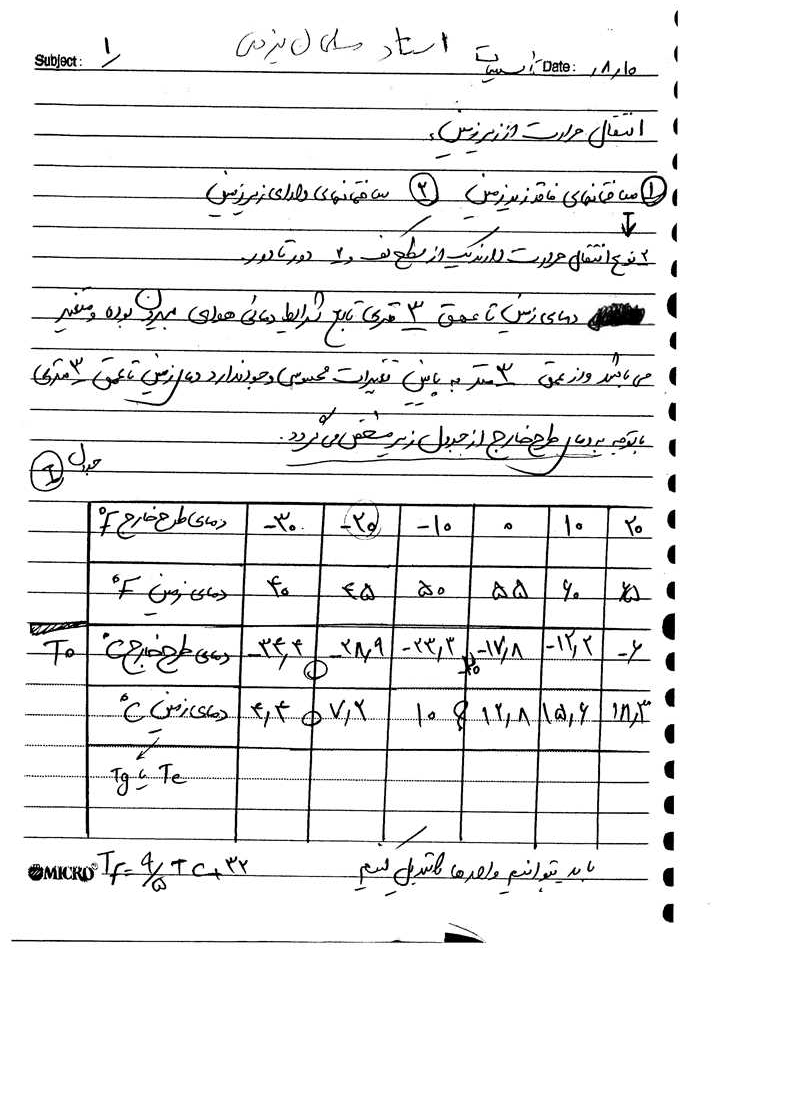 Subject: ۱ استاد سلمان یزدی تاسیسات Date: ۸,۱۰
انتقال حرارت از زیرزمین:
① ساختمانهای فاقد زیرزمین ② ساختمانهای دارای زیرزمین
۲ نوع انتقال حرارت دارند یک از سطح کف و ۲ دور تا دور.
دمای زمین تا عمق ۳ متری تابع شرایط دمائی هوای بیرون بوده و متغیر
می باشد و از عمق ۳ متر به پایین تغییرات محسوسی وجود ندارد دمای زمین تا عمق ۳ متری
با توجه به دمای طرح خارج از جدول زیر مشخص می گردد.
جدول ①
دمای طرح خارج °F -۳۰ -۲۰ -۱۰ ۰ ۱۰ ۲۰
دمای زمین °F ۴۰ ۴۵ ۵۰ ۵۵ ۶۰ ۶۵
To دمای طرح خارج °C -۳۴,۴ -۲۸,۹ -۲۳,۳ -۲۰ -۱۷,۸ -۱۲,۲ -۶
دمای زمین °C ۴,۴ ۷,۲ ۱۰ ? ۱۲,۸ ۱۵,۶ ۱۸,۳
Tg یا Te
MICRO TF = ۹/۵ TC + ۳۲ باید بتوانیم واحدها را تبدیل کنیم